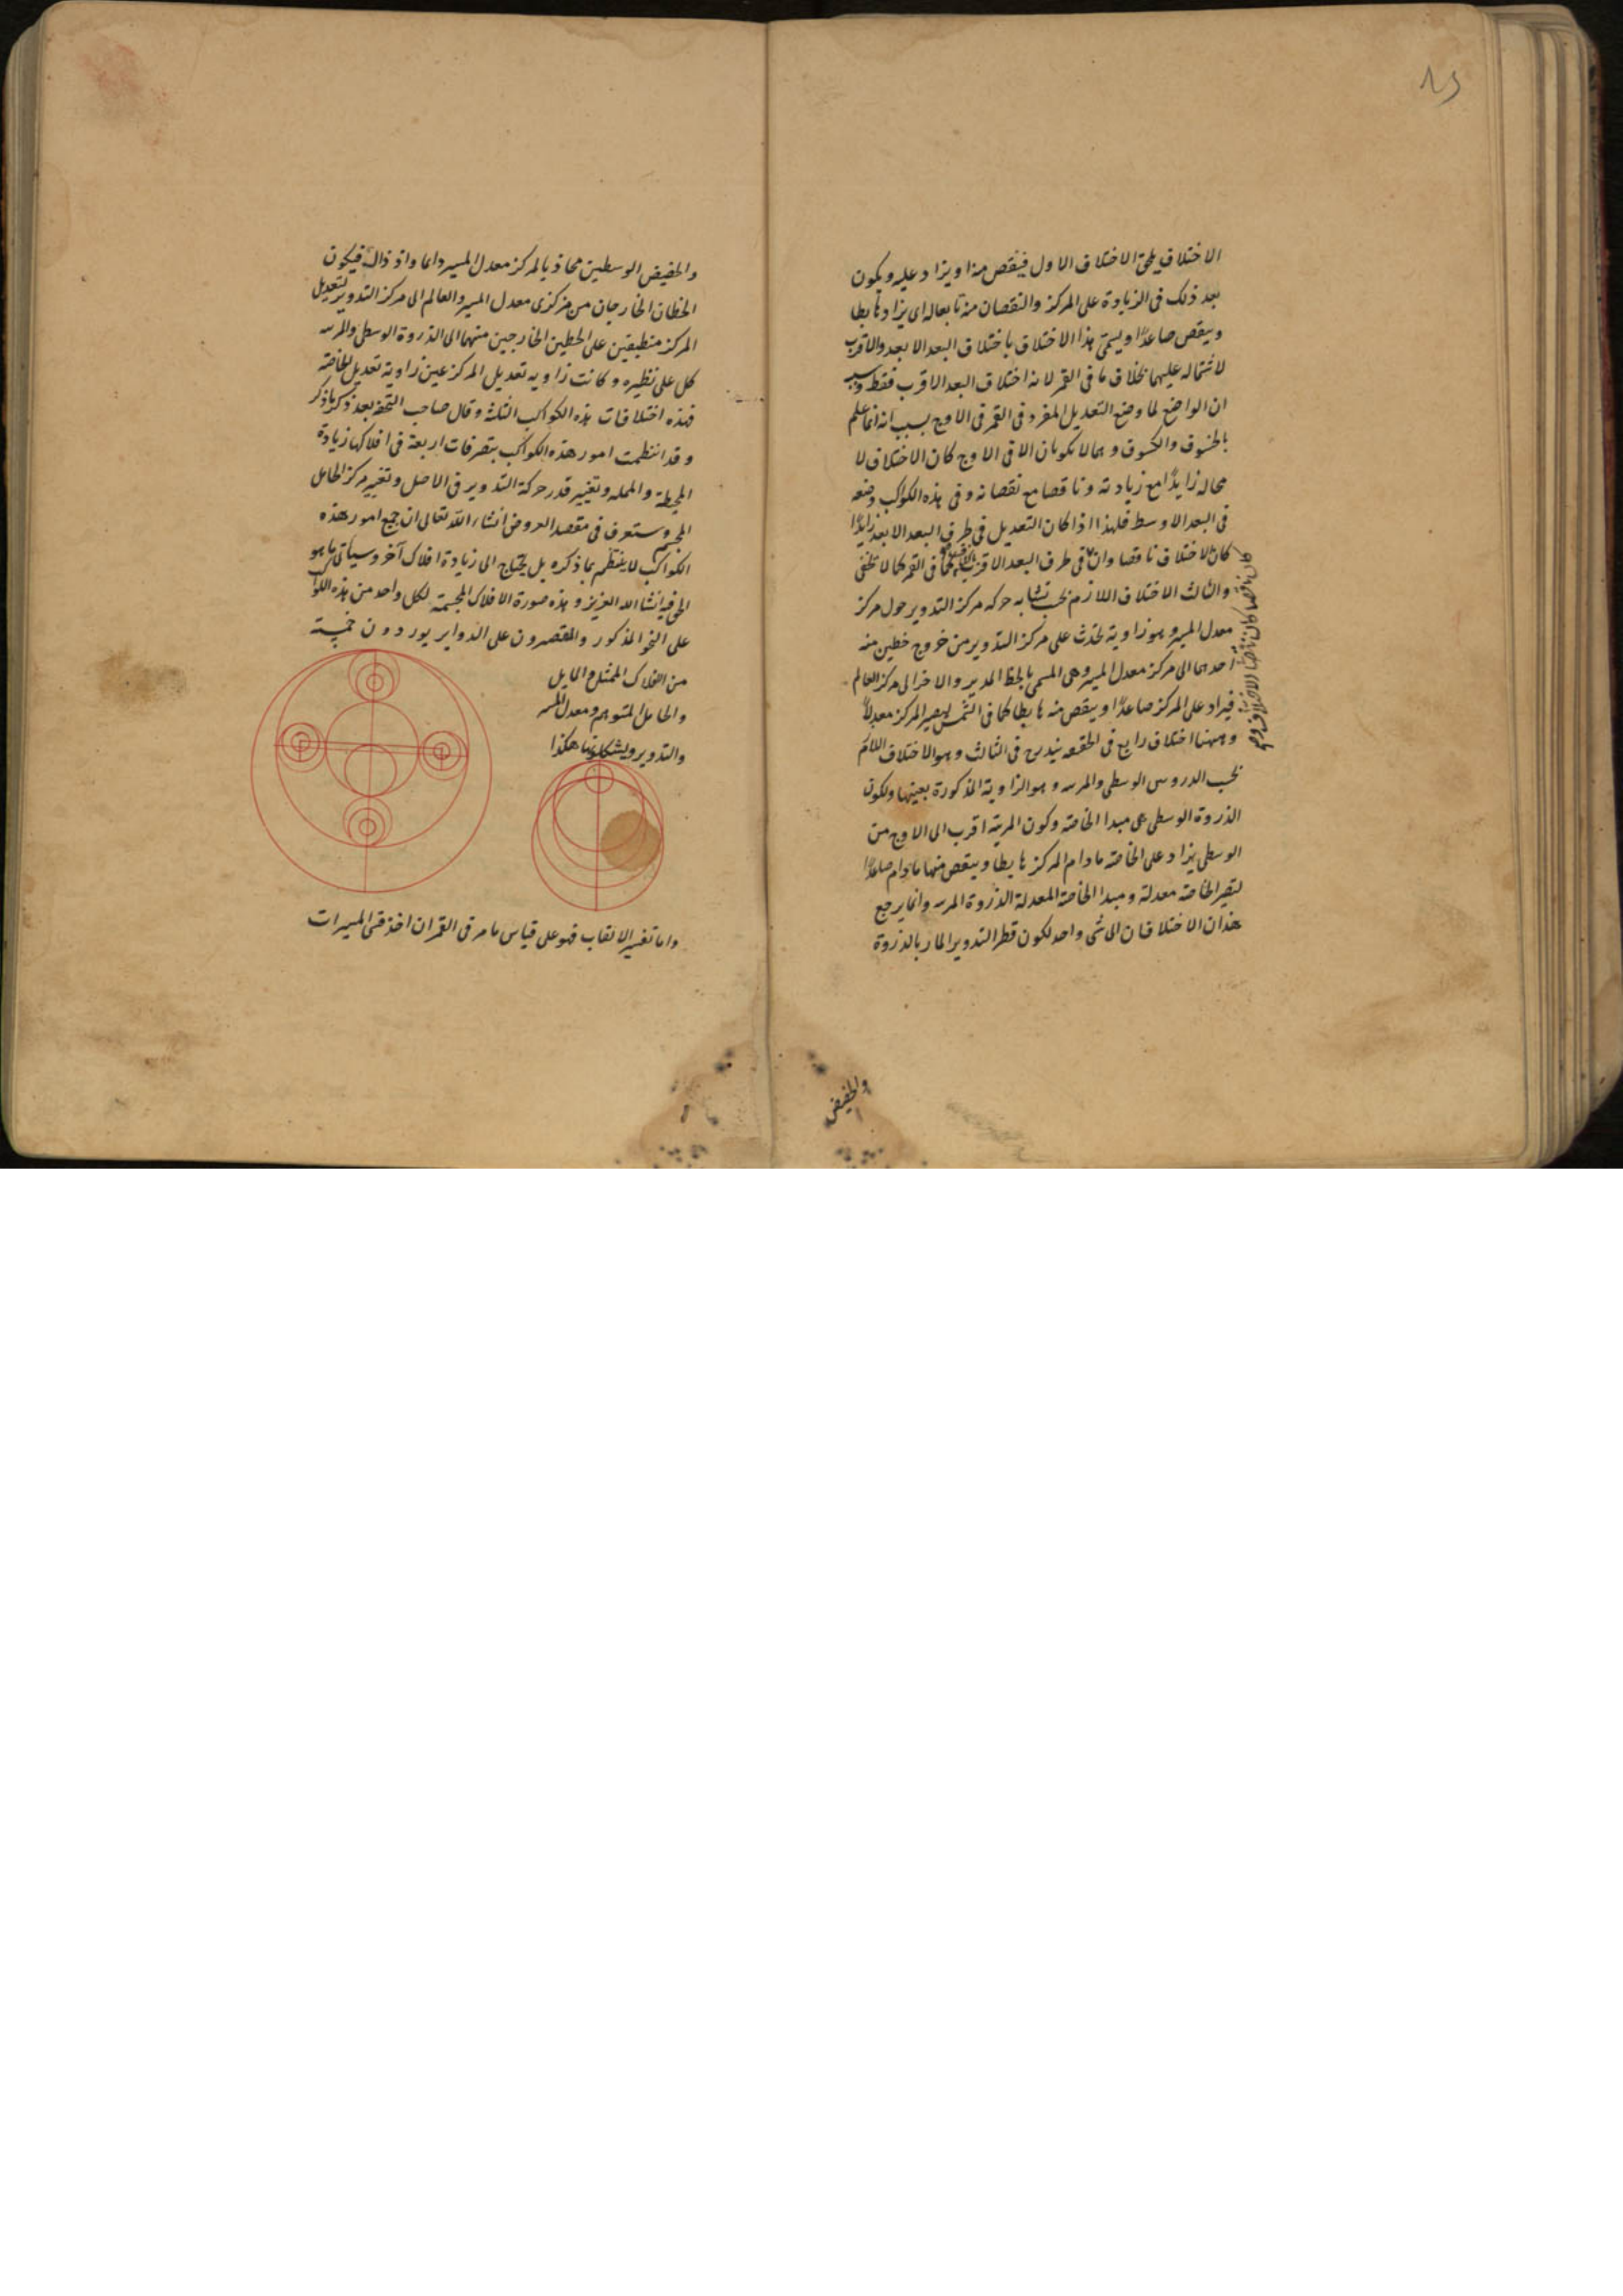 الاختلاف يلحق الاختلاف الاول فينقص منه او يزاد عليه ويكون
بعد ذلك فى الزيادة على المركز والنقصان منه تابعا له اى يزاد هابطا
وينقص صاعدًا ويسمى هذا الاختلاف باختلاف البعد الابعد والاقرب
لاشتماله عليهما بخلاف ما فى القمر لانه اختلاف البعد الاقرب فقط وسبب
ان الواضع لما وضع التعديل المفرد فى القمر فى الاوج بسبب انه انما علم
بالخسوف والكسوف وهما لا يكونان الا فى الاوج كان الاختلاف لا
محاله زايدًا مع زيادته وناقصا مع نقصانه وفى هذه الكواكب وضعه
فى البعد الاوسط فلهذا اذا كان التعديل فى طرف البعد الابعد زايدًا
كان الاختلاف ناقصا وان فى طرف البعد الاقرب كما فى القمر كما لا يخفى
والثالث الاختلاف اللازم بحسب تشابه حركه مركز التدوير حول مركز
معدل المسير وهو زاوية تحدث على مركز التدوير من خروج خطين منه
احدهما الى مركز معدل المسير وهى المسمى بالخط المدير والاخر الى مركز العالم
فيزاد على المركز صاعدًا وينقص منه هابطا كما فى الشمس ليصير المركز معدلاً
وههنا اختلاف رابع فى الحقيقه يندرج فى الثالث وهو الاختلاف اللازم
بحسب الذروتين الوسطى والمرييه وهو الزاوية المذكورة بعينها ولكون
الذروة الوسطى هى مبدا الخاصة وكون المريية اقرب الى الاوج من
الوسطى يزاد على الخاصة مادام المركز هابطا وينقص منها مادام صاعدًا
لتصير الخاصة معدلة ومبدا الخاصة المعدلة الذروة المرييه وانما يرجع
هذان الاختلافان الى شى واحد لكون قطر التدوير المار بالذروة
والحضيض
والحضيض الوسطين محاذيا لمركز معدل المسير دايما واذ ذاك فيكون
الخطان الخارجان من مركزى معدل المسير والعالم الى مركز التدوير لتعديل
المركز منطبقين على الخطين الخارجين منهما الى الذروة الوسطى والمرييه
كل على نظيره وكانت زاويه تعديل المركز عين زاوية تعديل الخاصة
فهذه اختلافات هذه الكواكب الثلثة وقال صاحب التحفه بعد ذكر ما ذكر
وقد انتظمت امور هذه الكواكب بتصرفات اربعة فى افلاكها زيادة
المحيطة والمميله وتغيير قدر حركة التدوير فى الاصل وتغيير مركز الحامل
المجسم وستعرف فى مقصد العروض انشاء الله تعالى ان جميع امور هذه
الكواكب لا ينتظم بما ذكره بل يحتاج الى زيادة افلاك آخر وسياتى ما هو
الحق فيه انشا الله العزيز وهذه صورة الافلاك المجسمة لكل واحد من هذه الكواكب
على النحو المذكور والمقتصرون على الدواير يوردون خمسة
من الافلاك الممثل والمايل
والحامل المتوهم ومعدل المسير
والتدوير ويشكلونها هكذا
واما تفسير الالقاب فهو على قياس ما مر فى القمر ان اخذ قسى المسيرات